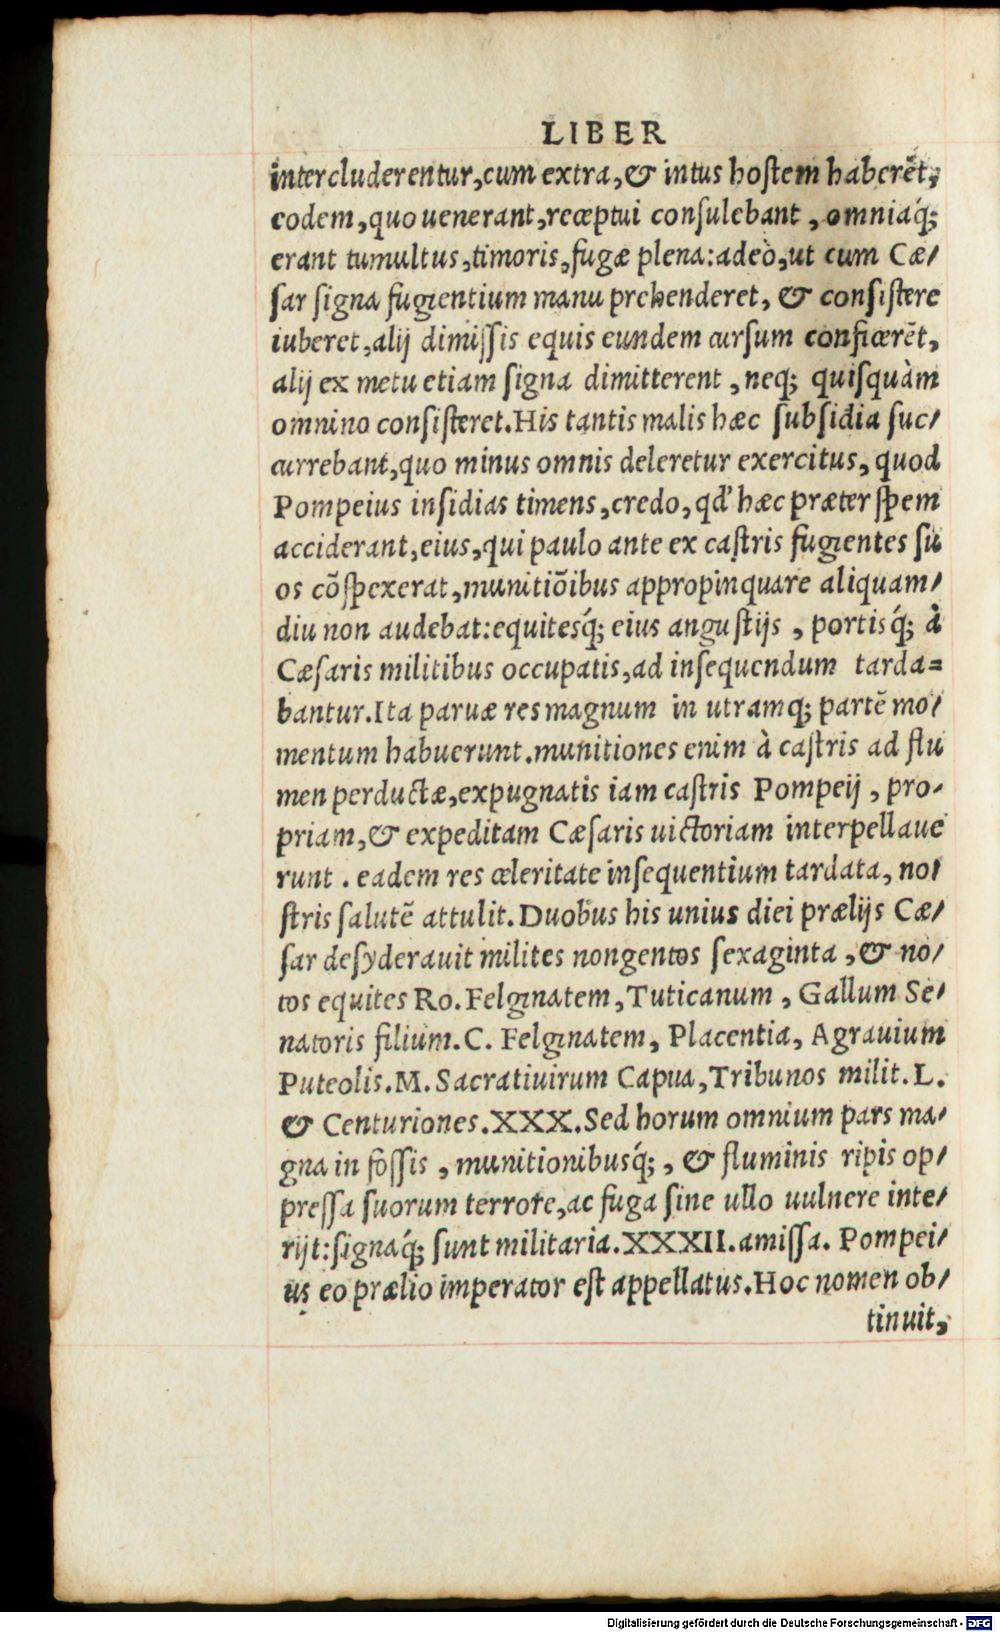 LIBER
intercluderentur,cum extra,& intus hostem haberēt,
eodem,quo uenerant,receptui consulebant , omniaq́;
erant tumultus,timoris,fugæ plena:adeò,ut cum Cæ/
sar signa fugientium manu prehenderet, & consistere
iuberet,alij dimissis equis eundem cursum conficerēt,
alij ex metu etiam signa dimitterent , neq; quisquàm
omnino consisteret.His tantis malis hæc subsidia suc/
currebant,quo minus omnis deleretur exercitus, quod
Pompeius insidias timens,credo, qd' hæc præter spem
acciderant,eius,qui paulo ante ex castris fugientes su
os cōspexerat,munitiōibus appropinquare aliquam/
diu non audebat:equitesq́; eius angustijs , portisq́; à
Cæsaris militibus occupatis,ad insequendum tarda=
bantur.Ita paruæ res magnum in utramq; partē mo/
mentum habuerunt.munitiones enim à castris ad flu
men perductæ,expugnatis iam castris Pompeij , pro-
priam,& expeditam Cæsaris uictoriam interpellaue
runt . eadem res celeritate insequentium tardata, no/
stris salutē attulit.Duobus his unius diei prælijs Cæ/
sar desyderauit milites nongentos sexaginta ,& no/
tos equites Ro.Felginatem,Tuticanum , Gallum Se/
natoris filium.C. Felginatem, Placentia, Agrauium
Puteolis.M.Sacratiuirum Capua,Tribunos milit.L.
& Centuriones.XXX.Sed horum omnium pars ma/
gna in fossis , munitionibusq́; , & fluminis ripis op/
pressa suorum terrore,ac fuga sine ullo uulnere inte/
rijt:signaq́; sunt militaria.XXXII.amissa. Pompei/
us eo prælio imperator est appellatus.Hoc nomen ob/
tinuit,
Digitalisierung gefördert durch die Deutsche Forschungsgemeinschaft - DFG